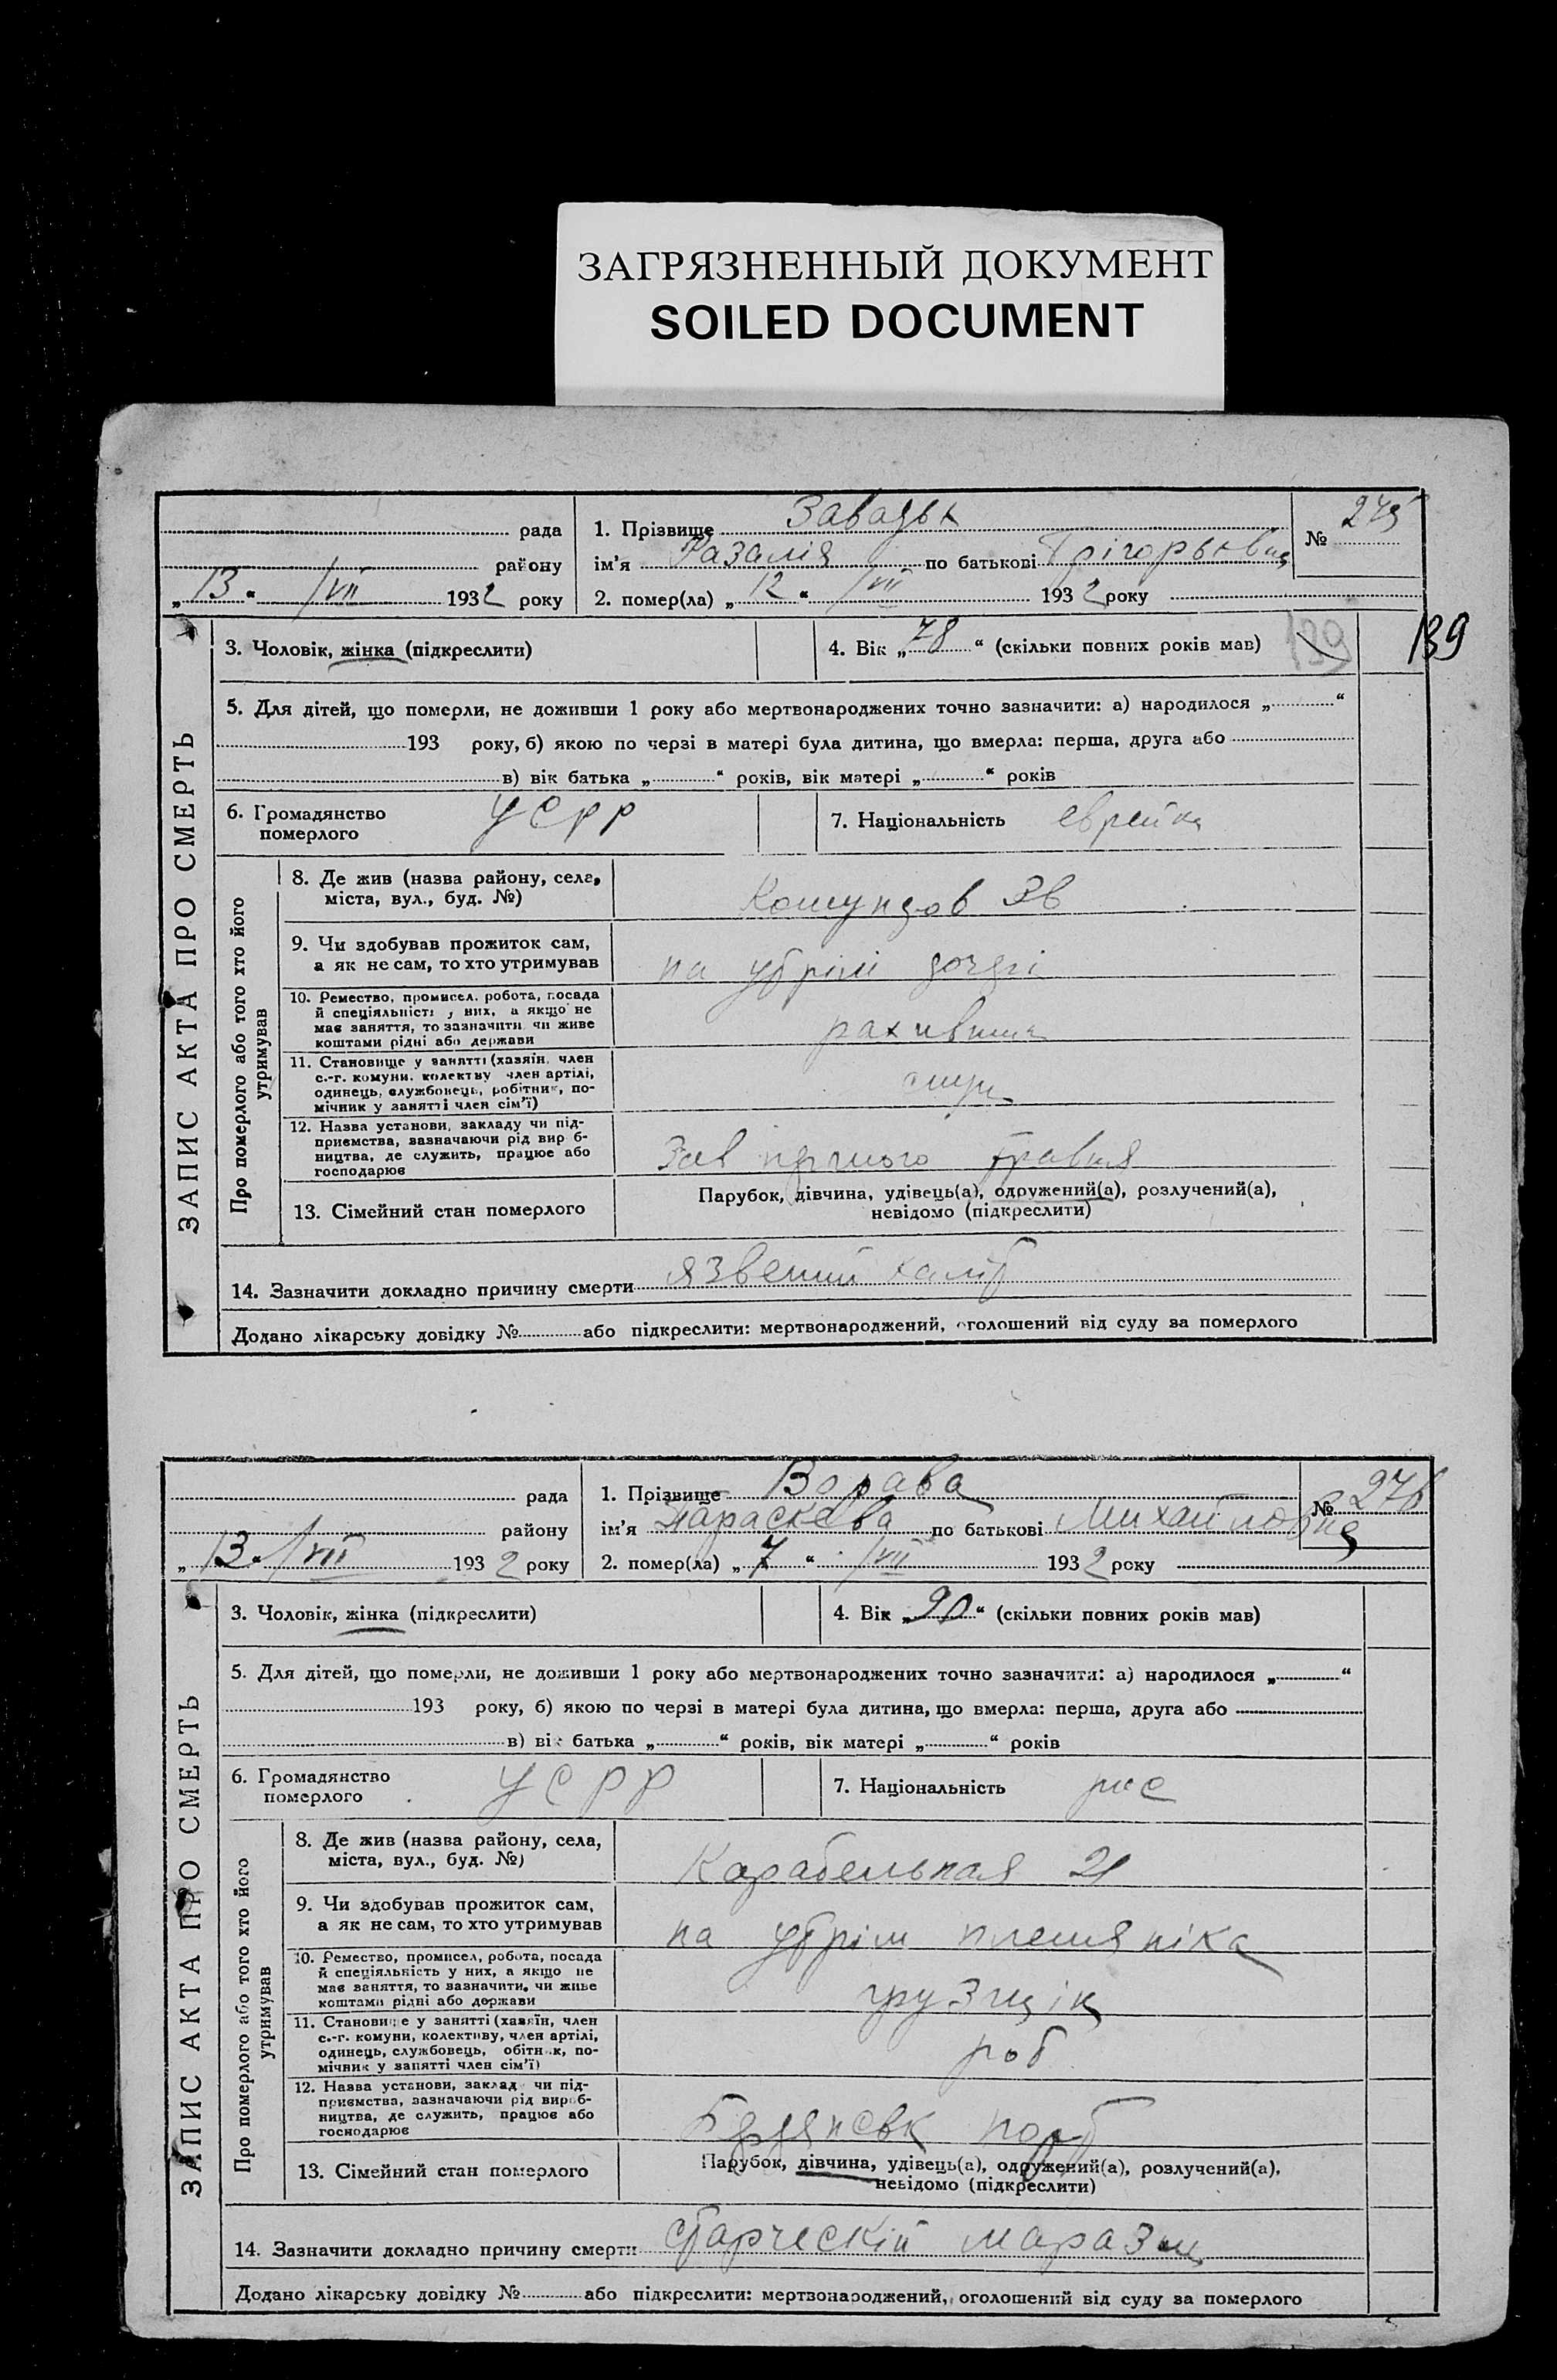 ЗАГРЯЗНЕННЫЙ ДОКУМЕНТ
SOILED DOCUMENT
рада
району
„13“ /VII 1932 року
1. Прізвище Завадьк
№ 275
ім’я Разалія по батькові Грігорьквна
2. помер(ла) „12“ /VII 1932 року
ЗАПИС АКТА ПРО СМЕРТЬ
3. Чоловік, жінка (підкреслити)
4. Вік „78“ (скільки повних років мав)
139
139
5. Для дітей, що померли, не доживши 1 року або мертвонароджених точно зазначити: а) народилося „ “
193 року, б) якою по черзі в матері була дитина, що вмерла: перша, друга або
в) вік батька „ “ років, вік матері „ “ років
6. Громадянство
померлого
УСРР
7. Національність еврейка
Про померлого або того хто його
утримував
8. Де жив (назва району, села,
міста, вул., буд. №)
9. Чи здобував прожиток сам,
а як не сам, то хто утримував
на утрімі
10. Ремество, промисел, робота, посада
й спеціяльність у них, а якщо не
має заняття, то зазначити чи живе
коштами рідні або держави
11. Становище у занятті (хазяїн, член
с.-г. комуни, колективу член артілі,
одинець, службовець, робітник, по-
мічник у занятті член сім’ї)
12. Назва установи, закладу чи під-
приємства, зазначаючи рід вироб-
ництва, де служить, працює або
господарює
Зав першого травня
13. Сімейний стан померлого
Парубок, дівчина, удівець(а), одружений(а), розлучений(а),
невідомо (підкреслити)
14. Зазначити докладно причину смерти язвений
Додано лікарську довідку № або підкреслити: мертвонароджений, оголошений від суду за померлого
рада
району
„13“ /VII 1932 року
1. Прізвище Ворава
№ 276
ім’я Параскева по батькові Михайловна
2. помер(ла) „7“ /VII 1932 року
ЗАПИС АКТА ПРО СМЕРТЬ
3. Чоловік, жінка (підкреслити)
4. Вік „90“ (скільки повних років мав)
5. Для дітей, що померли, не доживши 1 року або мертвонароджених точно зазначити: а) народилося „ “
193 року, б) якою по черзі в матері була дитина, що вмерла: перша, друга або
в) вік батька „ “ років, вік матері „ “ років
6. Громадянство
померлого
УСРР
7. Національність рос
Про померлого або того хто його
утримував
8. Де жив (назва району, села,
міста, вул., буд. №)
Карабельная 21
9. Чи здобував прожиток сам,
а як не сам, то хто утримував
на утрім племяніка
10. Ремество, промисел, робота, посада
й спеціяльність у них, а якщо не
має заняття, то зазначити, чи живе
коштами рідні або держави
грузщік
11. Становище у занятті (хазяїн, член
с.-г. комуни, колективу, член артілі,
одинець, службовець, робітник, по-
мічник у занятті член сім’ї)
роб
12. Назва установи, закладу чи під-
приємства, зазначаючи рід вироб-
ництва, де служить, працює або
господарює
Бердянськ порт
13. Сімейний стан померлого
Парубок, дівчина, удівець(а), одружений(а), розлучений(а),
невідомо (підкреслити)
14. Зазначити докладно причину смерти старческій маразм
Додано лікарську довідку № або підкреслити: мертвонароджений, оголошений від суду за померлого